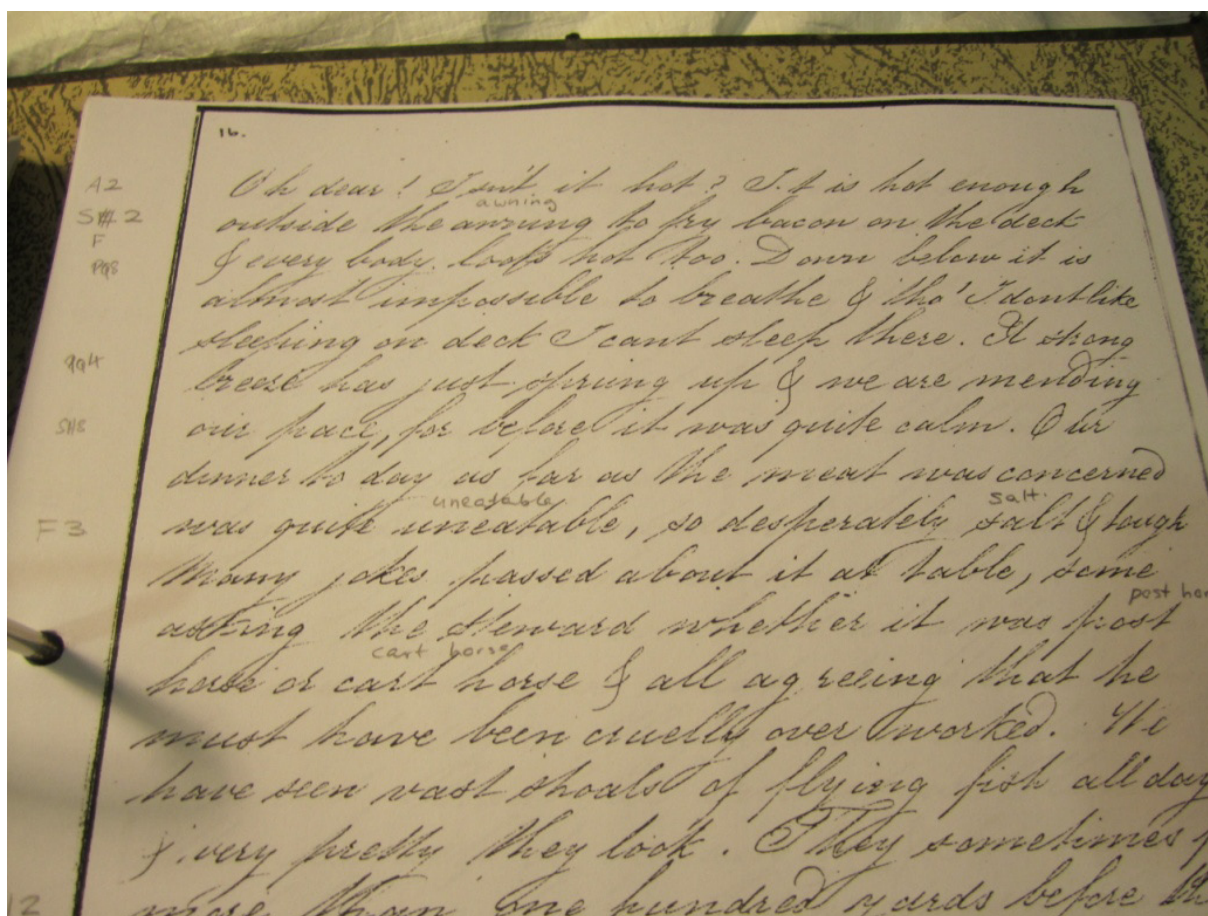 16.
A2
Oh dear! Isn't it hot? It is hot enough
awning
S#2
outside the awning to fry bacon on the deck
F
& every body looks hot too. Down below it is
PQ8
almost impossible to breathe & tho' I dont like
sleeping on deck I cant sleep there. A strong
PQ4
breeze has just sprung up & we are mending
SH8
our pace, for before it was quite calm. Our
dinner to day as far as the meat was concerned
uneatable
salt.
F3
was quite uneatable, so desperately salt & tough
Many jokes passed about it at table, some
post hor
asking the Steward whether it was post
cart horse
horse or cart horse & all agreeing that he
must have been cruelly over worked. We
have seen vast shoals of flying fish all day
& very pretty they look. They sometimes
12
more than one hundred yards before